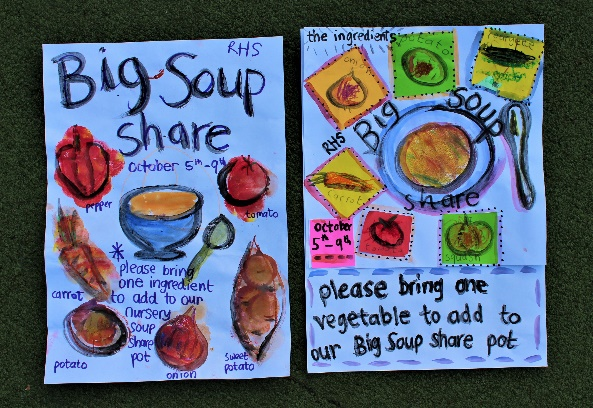 RHS
Big Soup
share
October 5th-9th
pepper
tomato
carrot
* please bring
one ingredient
to add to our
nursery
soup
share
pot
potato
onion
sweet
potato
the ingredients
potato
onion
RHS
Big Soup
share
carrot
October
5th-9th
squash
please bring one
vegetable to add to
our Big Soup share pot